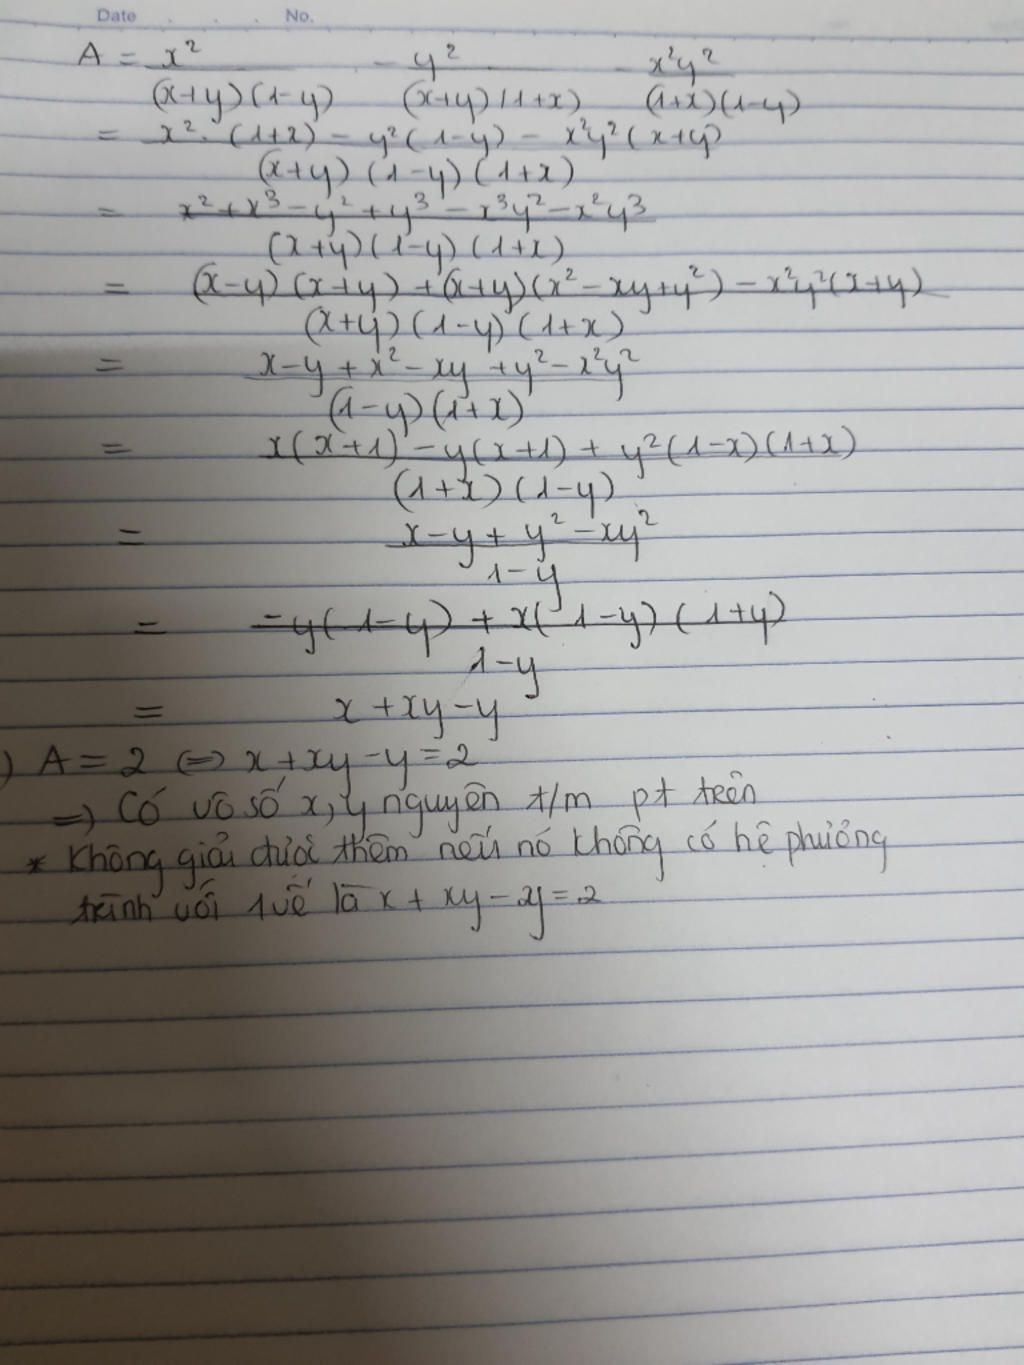 Date . . . No.
A = x² - y² - x²y²
(x+y)(1-y) (x+y)(1+x) (1+x)(1-y)
= x². (1+x) - y²(1-y) - x²y²(x+y)
(x+y)(1-y)(1+x)
= x²+x³-y²+y³-x³y²-x²y³
(x+y)(1-y)(1+x)
= (x-y)(x+y)+(x+y)(x²-xy+y²)-x²y²(x+y)
(x+y)(1-y)(1+x)
= x-y+x²-xy+y²-x²y²
(1-y)(1+x)
= x(x+1)-y(x+1)+y²(1-x)(1+x)
(1+x)(1-y)
= x-y+y²-xy²
1-y
= -y(1-y)+x(1-y)(1+y)
1-y
= x+xy-y
) A = 2 <=> x+xy-y=2
=> Có vô số x, y nguyên t/m pt trên
* Không giải được thêm nếu nó không có hệ phương
trình với 1 vế là x+xy-2y=2